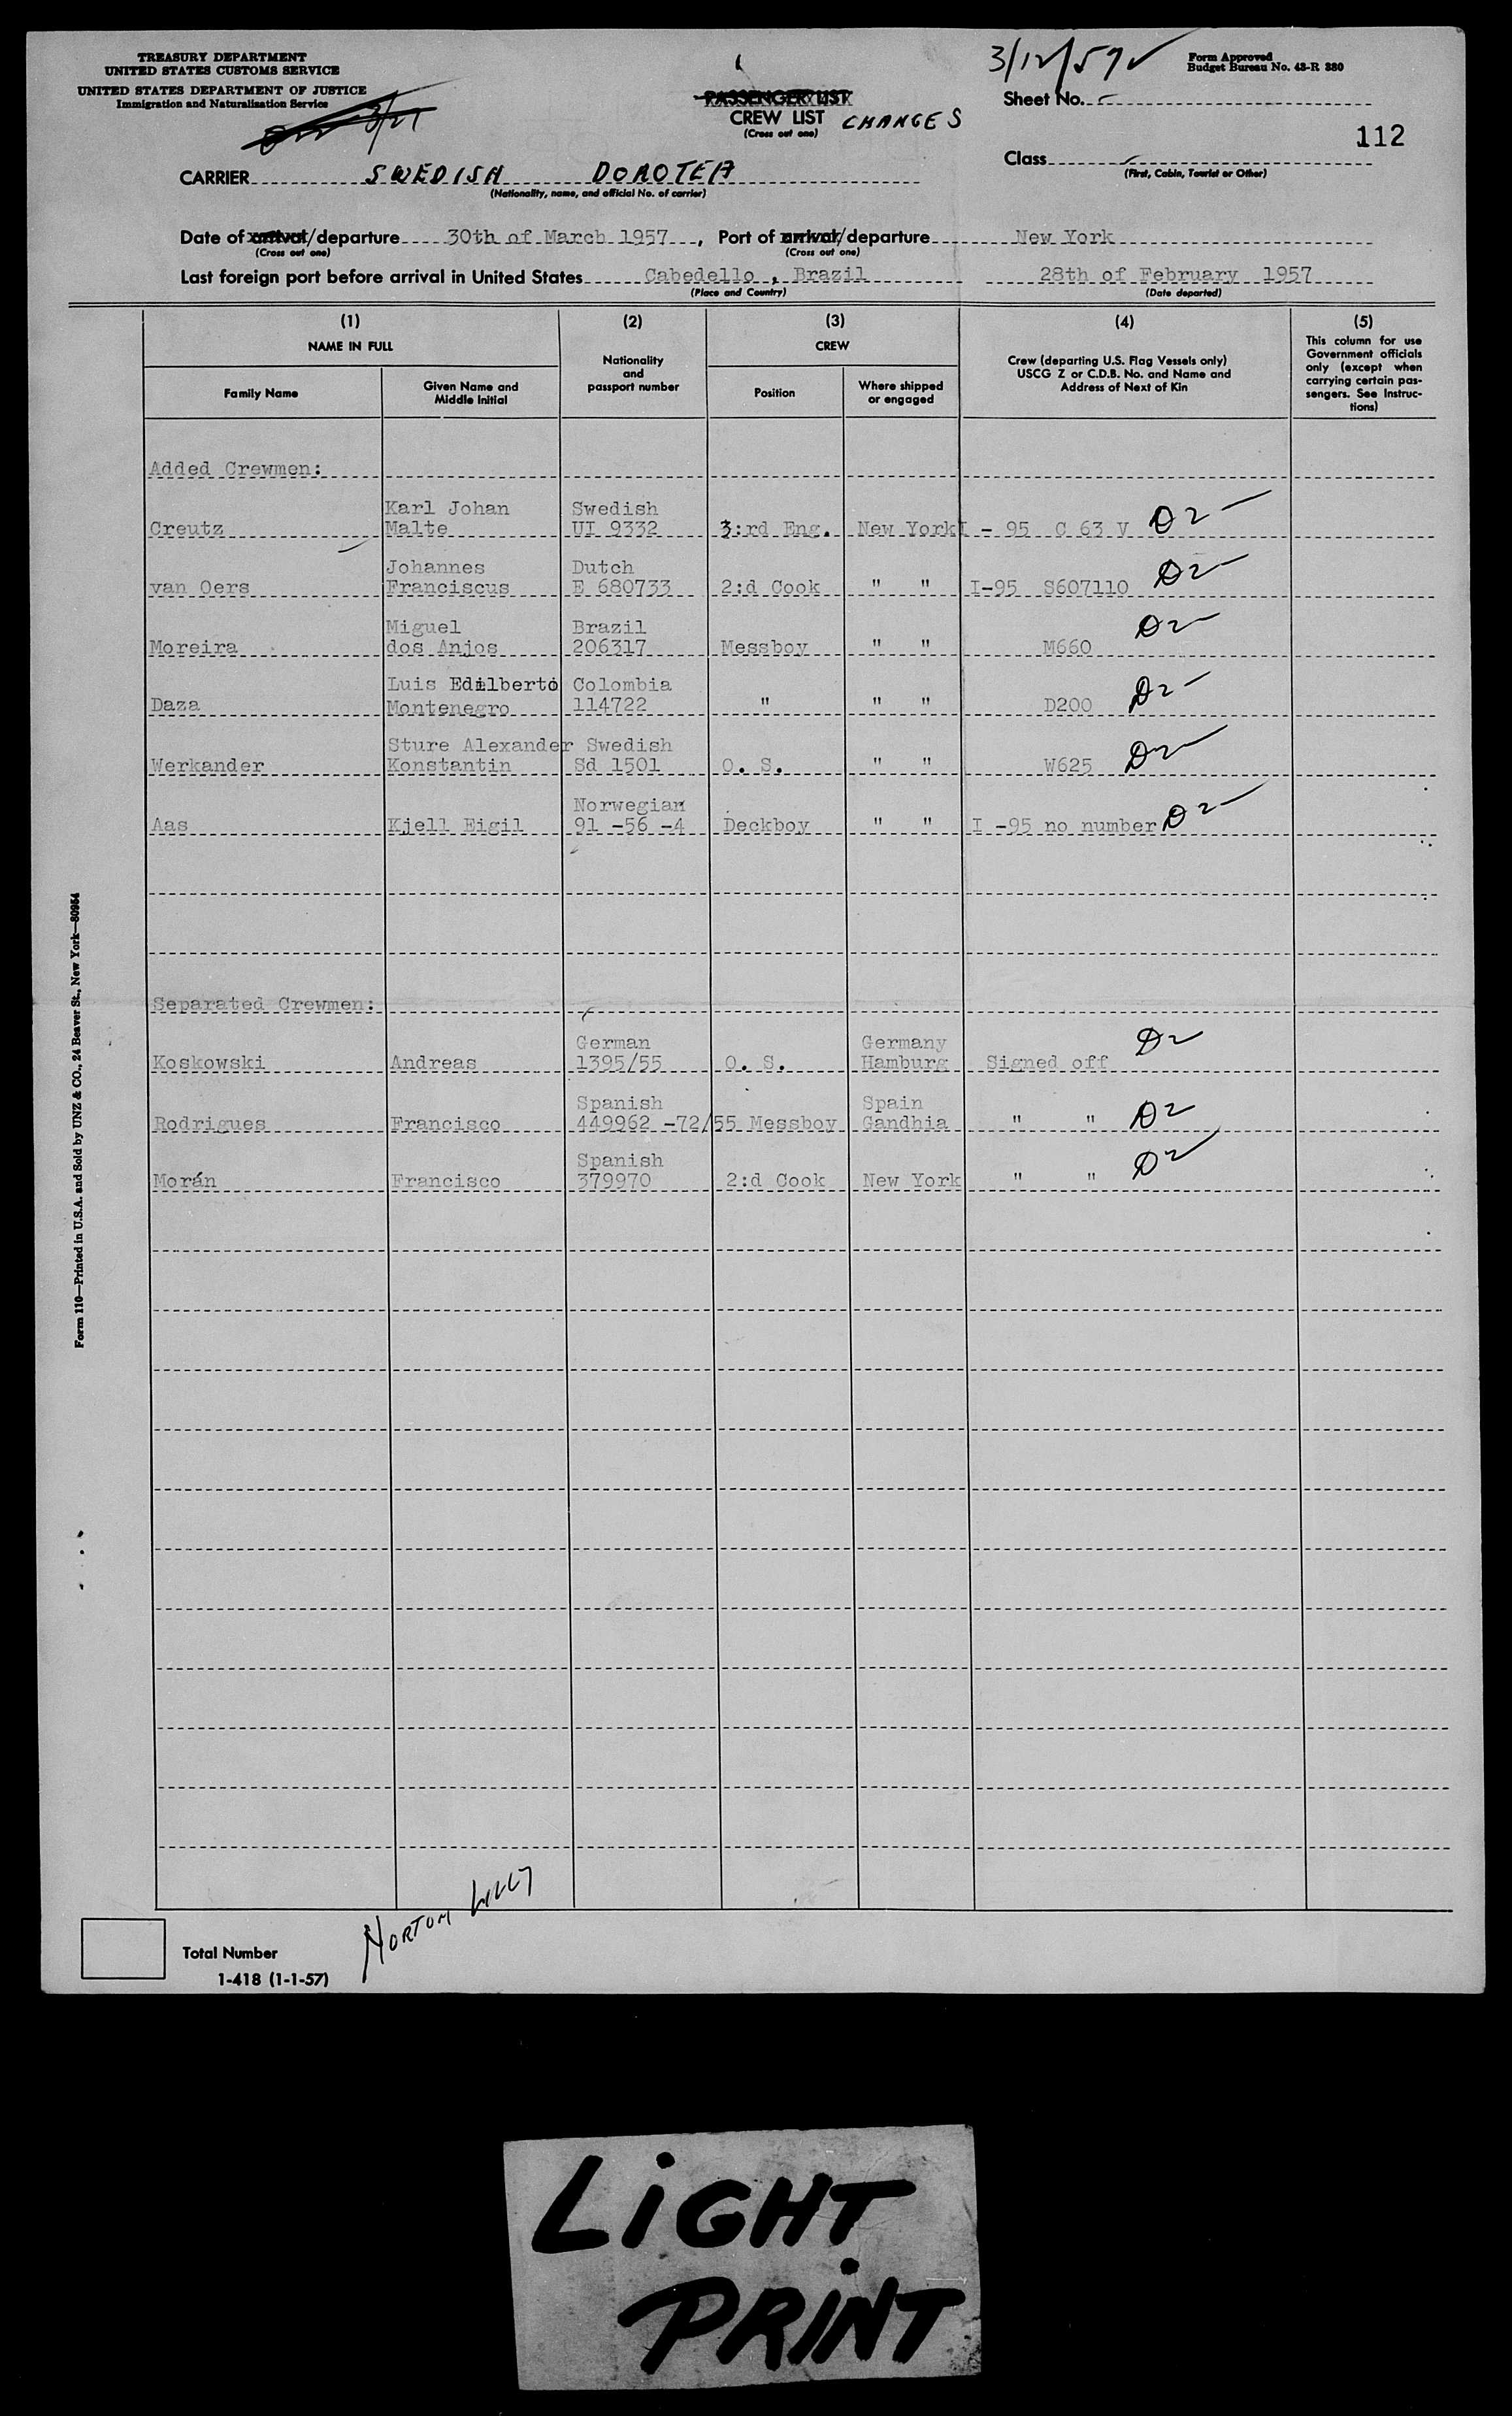 TREASURY DEPARTMENT
UNITED STATES CUSTOMS SERVICE
UNITED STATES DEPARTMENT OF JUSTICE
Immigration and Naturalization Service
3/12/57
Form Approved
Budget Bureau No. 43-R 380
PASSENGER LIST
CREW LIST CHANGES
(Cross out one)
Sheet No.
112
Class
(First, Cabin, Tourist or Other)
CARRIER SWEDISH DOROTEA
(Nationality, name, and official No. of carrier)
Date of arrival/departure 30th of March 1957, Port of arrival/departure New York
(Cross out one) (Cross out one)
Last foreign port before arrival in United States Cabedello , Brazil 28th of February 1957
(Place and Country) (Date departed)
(1) (2) (3) (4) (5)
NAME IN FULL
Family Name
Given Name and
Middle Initial
Nationality
and
passport number
CREW
Position
Where shipped
or engaged
Crew (departing U.S. Flag Vessels only)
USCG Z or C.D.B. No. and Name and
Address of Next of Kin
This column for use
Government officials
only (except when
carrying certain pas-
sengers. See Instruc-
tions)
Added Crewmen:
Karl Johan Swedish
Creutz Malte UI 9332 3:rd Eng. New York I - 95 C 63 V D2
Johannes Dutch
van Oers Franciscus E 680733 2:d Cook " " I-95 S607110 D2
Miguel Brazil
Moreira dos Anjos 206317 Messboy " " M660 D2
Luis Edilberto Colombia
Daza Montenegro 114722 " " " D200 D2
Sture Alexander Swedish
Werkander Konstantin Sd 1501 O. S. " " W625 D2
Norwegian
Aas Kjell Eigil 91 -56 -4 Deckboy " " I -95 no number D2
Separated Crewmen:
German Germany
Koskowski Andreas 1395/55 O. S. Hamburg Signed off D2
Spanish Spain
Rodrigues Francisco 449962 -72/55 Messboy Gandhia " " D2
Spanish
Morán Francisco 379970 2:d Cook New York " " D2
Form 110—Printed in U.S.A. and Sold by UNZ & CO., 24 Beaver St., New York—80954
Total Number
1-418 (1-1-57)
NORTON LILLY
LiGHT
PRiNT